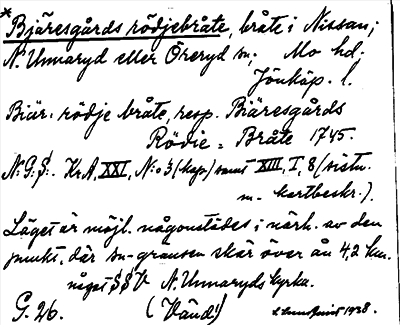 * Bjäresgårds rödjebråte, bråte i Nissan;
N. Unnaryd eller Öreryd sn; Mo hd;
Jönköp. l.
Biär: rödje bråte, resp. Biäresgårds
Rödie = Bråte 1745.
N:G:S:. Kr.A, XXI, N:o 3 (kop.) samt XIII, I, 8 (sistn.
m. kartbeskr.).
Läget är möjl. någonstädes i närh. av den
punkt, där sn-gränsen skär över ån 4,2 km.
något SSV N. Unnaryds kyrka.
G. 26. (Vänd!) 1938.